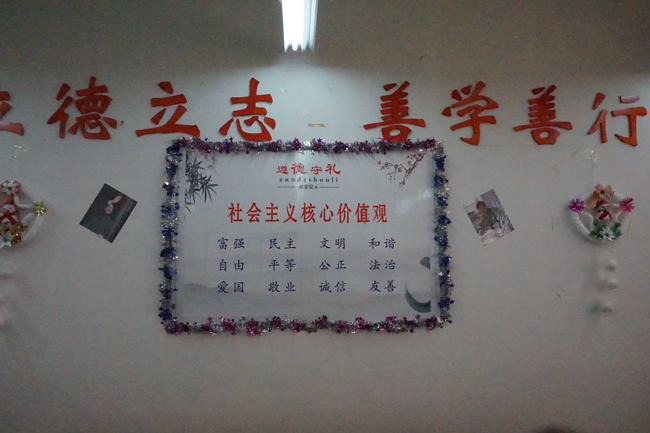 立德立志 善学善行
遵德守礼
zundeshouli
社会主义核心价值观
富强 民主 文明 和谐
自由 平等 公正 法治
爱国 敬业 诚信 友善